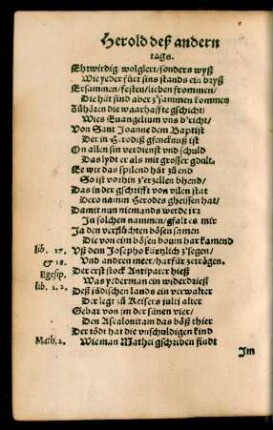 Herold deß andern
tags.
Ehrwirdig wolglert/sonders wyß
Wie yeder fürt sins stands ein bryß
Ersammen/festen/lieben frommen/
Die hüt sind aber z'sammen kommen
Zů hören die waarhaffte gschicht
Wies Euangelium vns b'richt/
Von Sant Joanne dem Baptist
Der in Herodiß gfencknuß ist
On allen sin verdienst vnd schuld
Das lydt er als mit grosser gdult.
Ee wir das spilend hüt zů end
So ist vorhin z'erzellen bhend/
Das in der gschrifft von vilen stat
Dero namm Herodes gheissen hat/
Damit nun niemands werde irr
In solchen nammen/ gfalt es mir
Ja den verflůchten bösen samen
Die von eim bösen boum har kamend
lib. 17. Vß dem Josepho kürtzlich z'segen/
& 18. Vnd andren meer/harfür zetrågen.
Egesip. Der erst stock Antipater hieß
lib. 1. 2. Was yederman ein widerdrieß
Deß jüdischen lands ein verwalter
Der legt zů Keisers julij alter
Gebar von im der sånen vier/
Den Ascalonitam das bößt thier
Der tödt hat die vnschuldigen kind
Math. 2. Wie man Mathei gschriben findt
Im